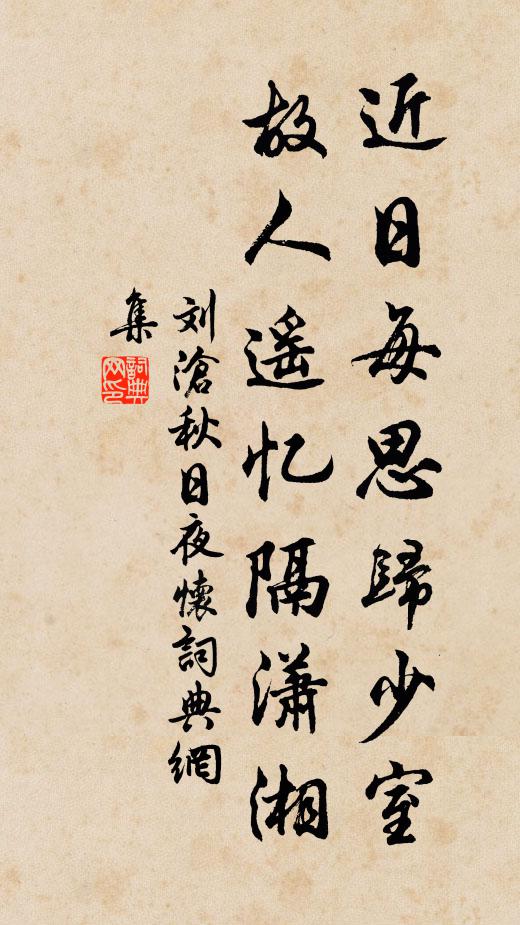 近日每思歸少室
故人遥忆隔潇湘
刘滄秋日夜懷詞典網
集
詞典网印